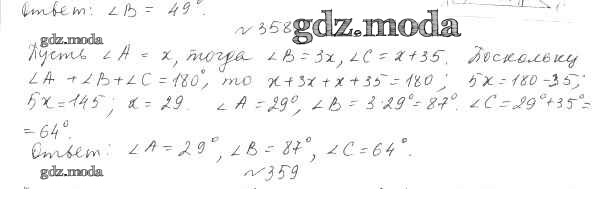 Ответ: ∠B = 49°.
№358
gdz.moda
gdz.moda
Пусть ∠A = x, тогда ∠B = 3x, ∠C = x + 35. Поскольку
∠A + ∠B + ∠C = 180°, то x + 3x + x + 35 = 180; 5x = 180 - 35;
5x = 145; x = 29. ∠A = 29°, ∠B = 3·29° = 87°. ∠C = 29° + 35° =
= 64°.
Ответ: ∠A = 29°, ∠B = 87°, ∠C = 64°.
gdz.moda
№359